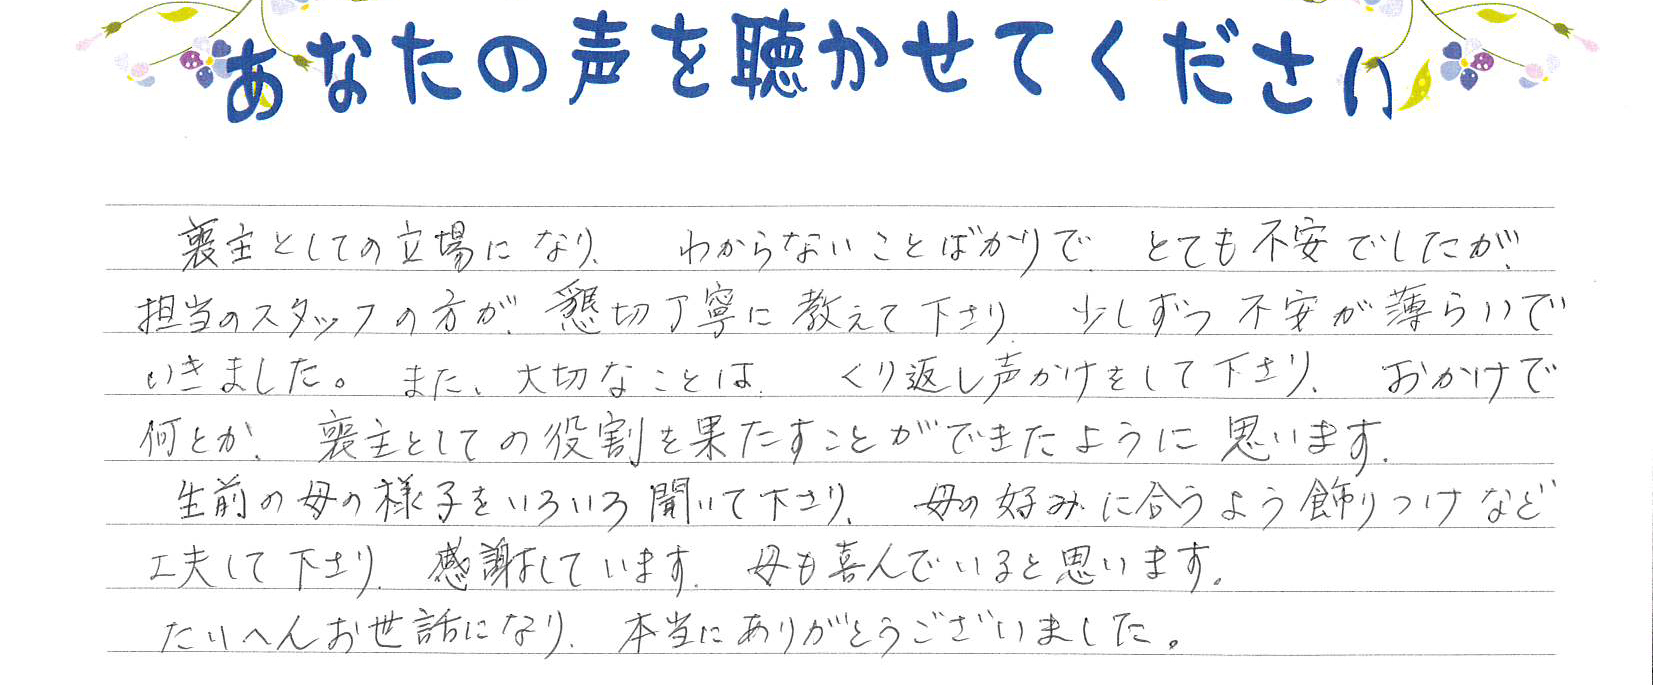 あなたの声を聴かせてください
喪主としての立場になり、わからないことばかりで、とても不安でしたが、
担当のスタッフの方が、懇切丁寧に教えて下さり、少しずつ不安が薄らいで
いきました。また、大切なことは、くり返し声かけをして下さり、おかげで
何とか、喪主としての役割を果たすことができたように思います。
生前の母の様子をいろいろ聞いて下さり、母の好みに合うよう飾りつけなど
工夫して下さり、感謝しています。母も喜んでいると思います。
たいへんお世話になり、本当にありがとうございました。